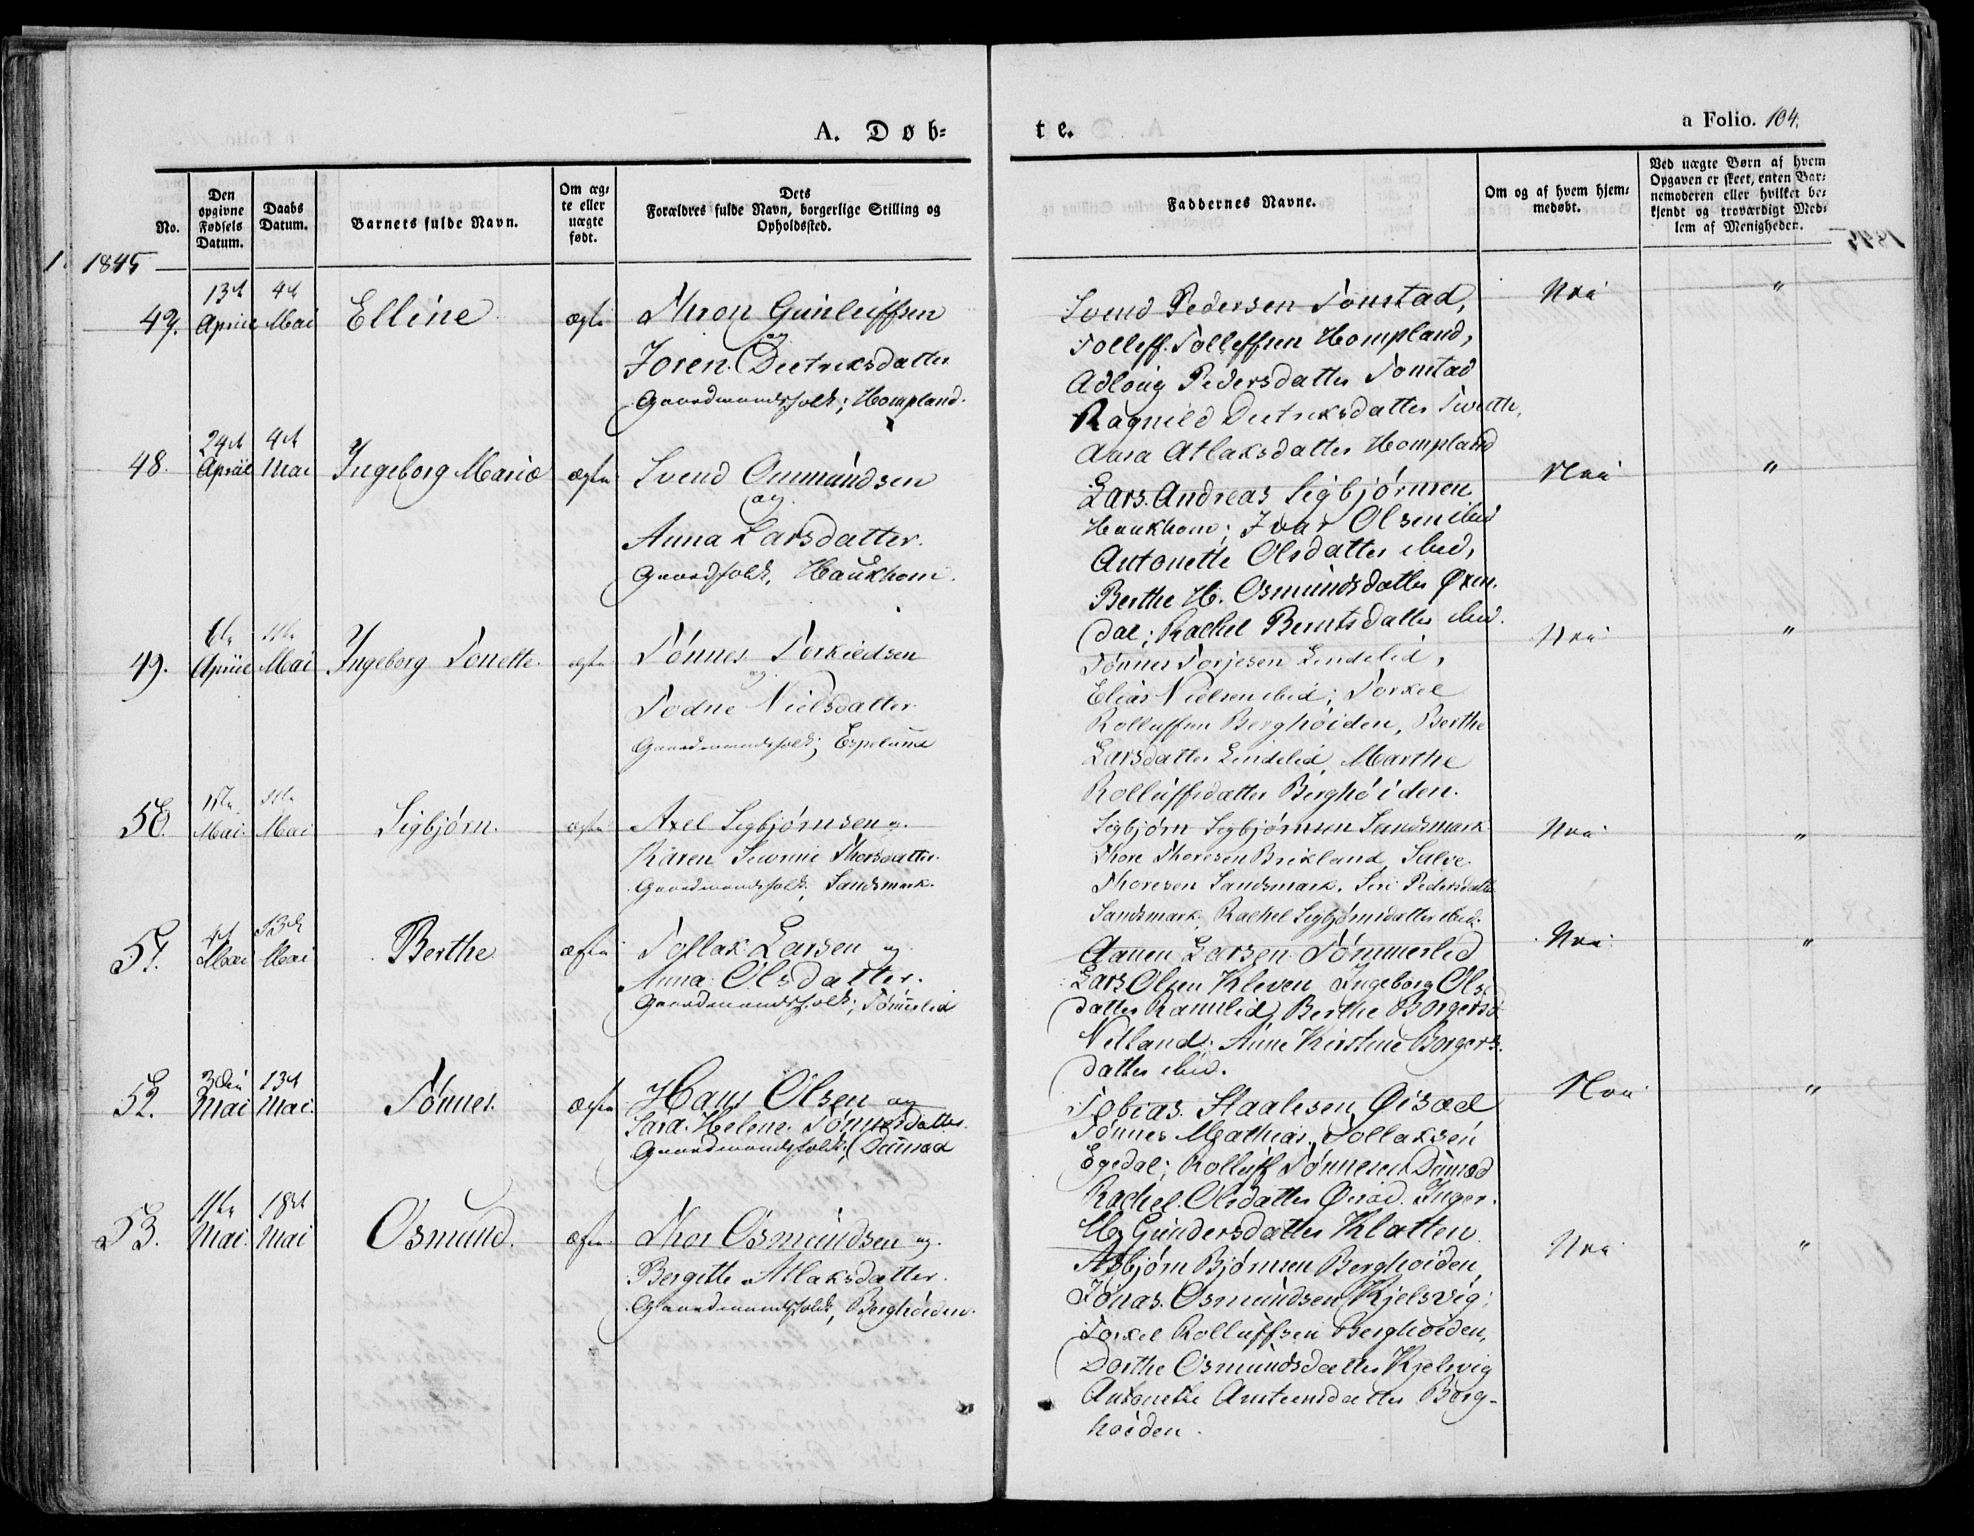 A. Døb=
te.
a Folio. 104.
No.
Den opgivne Fødsels Datum.
Daabs Datum.
Barnets fulde Navn.
Om æg-
te eller
uægte
født.
Dets
Forældres fulde Navn, borgerlige Stilling og
Opholdssted.
Faddernes Navne.
Om og af hvem hjem-
medøbt.
Ved uægte Børn af hvem
Opgaven er skeet, enten Bar-
nemoderen eller hvilket be-
kjendt og troværdigt Med-
lem af Menigheden.
1845
47. 13de April 4de Mai Elline ægte
Gunleiffsen
og
Joren Deetriksdatter
Gaardmandsfolk; Hompland.
Svend Pedersen Tonstad,
Tolleff Tolleffsen Hompland,
Adloug Pedersdatter Tonstad
Ragnild Deetriksdatter
Aasa Atlaksdatter Hompland
Nei "
48. 24de April 4de Mai Ingeborg Marie ægte
Svend Ommundsen
og
Anna Larsdatter.
Gaardfolk, Haukhom.
Lars Andreas Sigbjørnsen
Haukhom; Ivar Olsen ibid
Antonette Olsdatter ibid,
Berthe H. Osmundsdatter Øxen-
dal; Rachel Berntsdatter ibid.
Nei "
49. 6te April 11te Mai Ingeborg Tonette. ægte
Tønnes Torkildsen
og
Todne Nielsdatter
Gaardmandsfolk; Espelund
Tønnes Torjesen Lindelid,
Elias Nielsen ibid; Torkel
Rolluffsen Berghøiden, Berthe
Larsdatter Lindelid, Marthe
Rolluffsdatter Berghøiden.
Nei "
50. Mai 11te Mai Sigbjørn. ægte
Axel Sigbjørnsen og
Karen Thorsdatter.
Gaardmandsfolk, Sandsmark.
Sigbjørn Sigbjørnsen Sandsmark
Thore Thoresen Salve
Thoresen Sandsmark. Siri Pedersdatter
Sandsmark, Rachel Sigbjørnsdatter ibid.
Nei "
51. 4de Mai 13de Mai Berthe ægte
Tollak Larsen og
Anna Olsdatter.
Gaardmandsfolk; Tømmerlid
Aanen Larsen Tømmerlid
Lars Olsen Kleven, Ingeborg Ols-
datter Ramslid, Berthe Borgersd
Netland; Anne Kirstine Borgers-
datter ibid.
Nei "
52. 3die Mai 13de Mai. Tønnes. ægte
Hans Olsen og
Sara Helene Tønnesdatter
Gaardmandsfolk,
Tobias Staalesen Øisæd
Tønnes Mathias Tollaksen
Egedal; Rolluff Tønnesen
Rachel Olsdatter Øisæd. Inger
Gundersdatter Klatten.
Nei "
53. 11te Mai. 18de Mai Osmund. ægte
Thor Osmundsen og
Bergitte Atlaksdatter.
Gaardmandsfolk, Berghøiden.
Asbjørn Bjørnsen Berghøiden,
Jonas Osmundsen Kjelsvig;
Torkel Rolluffsen Berghøiden,
Dorthe Osmundsdatter Kjelsvig
Antonethe Berg-
høiden.
Nei "